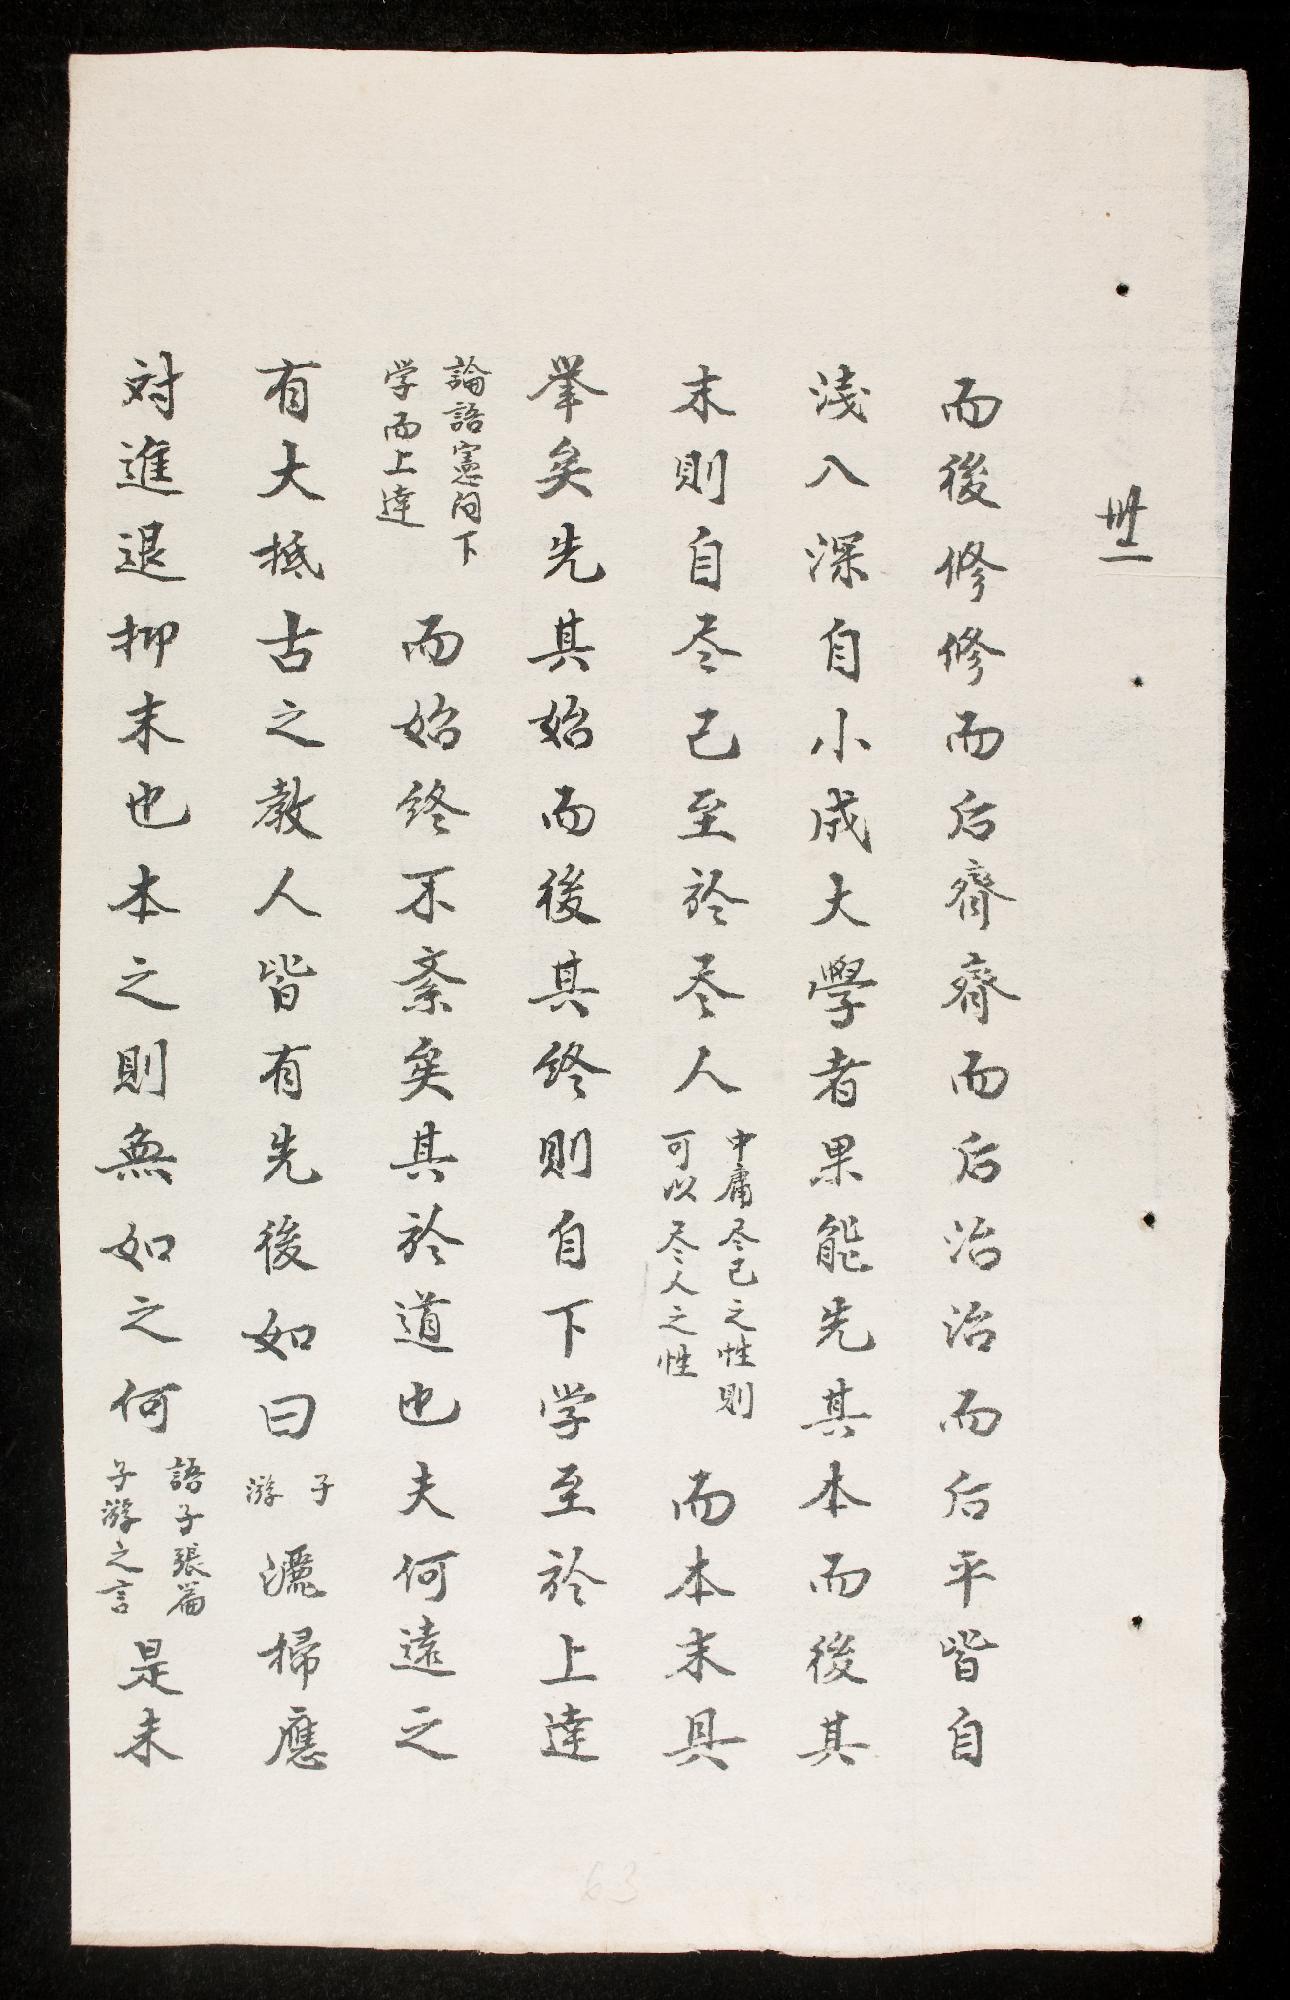 卌一
而後修修而后齊齊而后治治而后平皆自
淺入深自小成大學者果能先其本而後其
末則自尽己至於尽人
中庸尽己之性則
可以尽人之性
而本末具
举矣先其始而後其終則自下学至於上達
論語憲问下
学而上達
而始終不紊矣其於道也夫何遠之
有大抵古之教人皆有先後如曰
子
游
灑掃應
対進退抑末也本之則無如之何
語子張篇
子游之言
是未
63